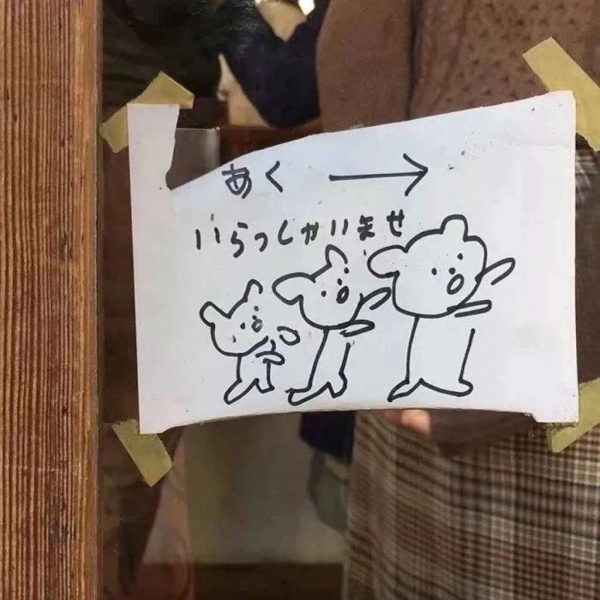 あく →
いらっしゃいませ